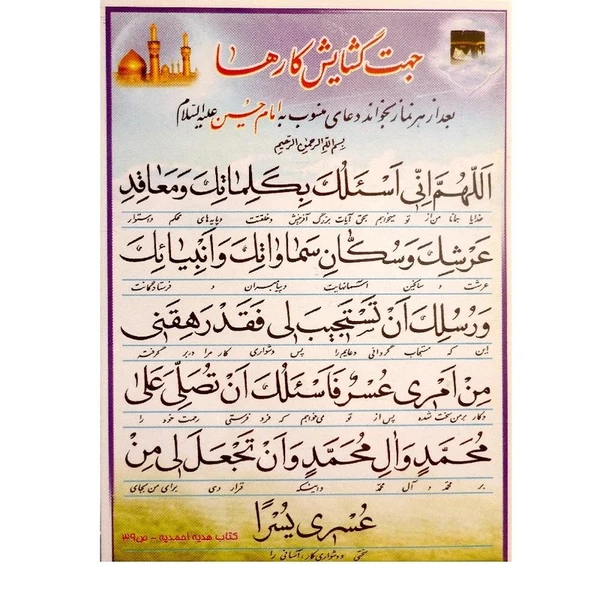 جهت گشایش کارها
بعد از هر نماز بخواند دعای منسوب به امام حسین علیه السلام
بسم الله الرحمن الرحیم
اَللّهُمَّ اِنّی اَسْئَلُكَ بِكَلِماتِكَ وَمَعاقِدِ
خدایا همانا من از تو میخواهم بحق آیات بزرگ آفرینش و خلقتت و پایه‌های محکم و استوار
عَرْشِكَ وَسُكّانِ سَماواتِكَ وَاَنْبِیائِكَ
عرشت و ساکنین آسمانهایت و پیامبران و فرستادگانت
وَرُسُلِكَ اَنْ تَسْتَجیبَ لی فَقَدْ رَهِقَنی
این که مستجاب گردانی دعایم را پس دشواری کار مرا در بر گرفته
مِنْ اَمْری عُسْرٌ فَاَسْئَلُكَ اَنْ تُصَلِّیَ عَلی
و کار بر من سخت شده پس از تو می‌خواهم که فرو فرستی رحمت خود را
مُحَمَّدٍ وَالِ مُحَمَّدٍ وَاَنْ تَجْعَلَ لی مِنْ
بر محمد و آل محمد و اینکه قرار دهی برای من بجای
عُسْری یُسْرًا
سختی و دشواری کار، آسانی را
کتاب هدیه احمدیه - ص۳۹